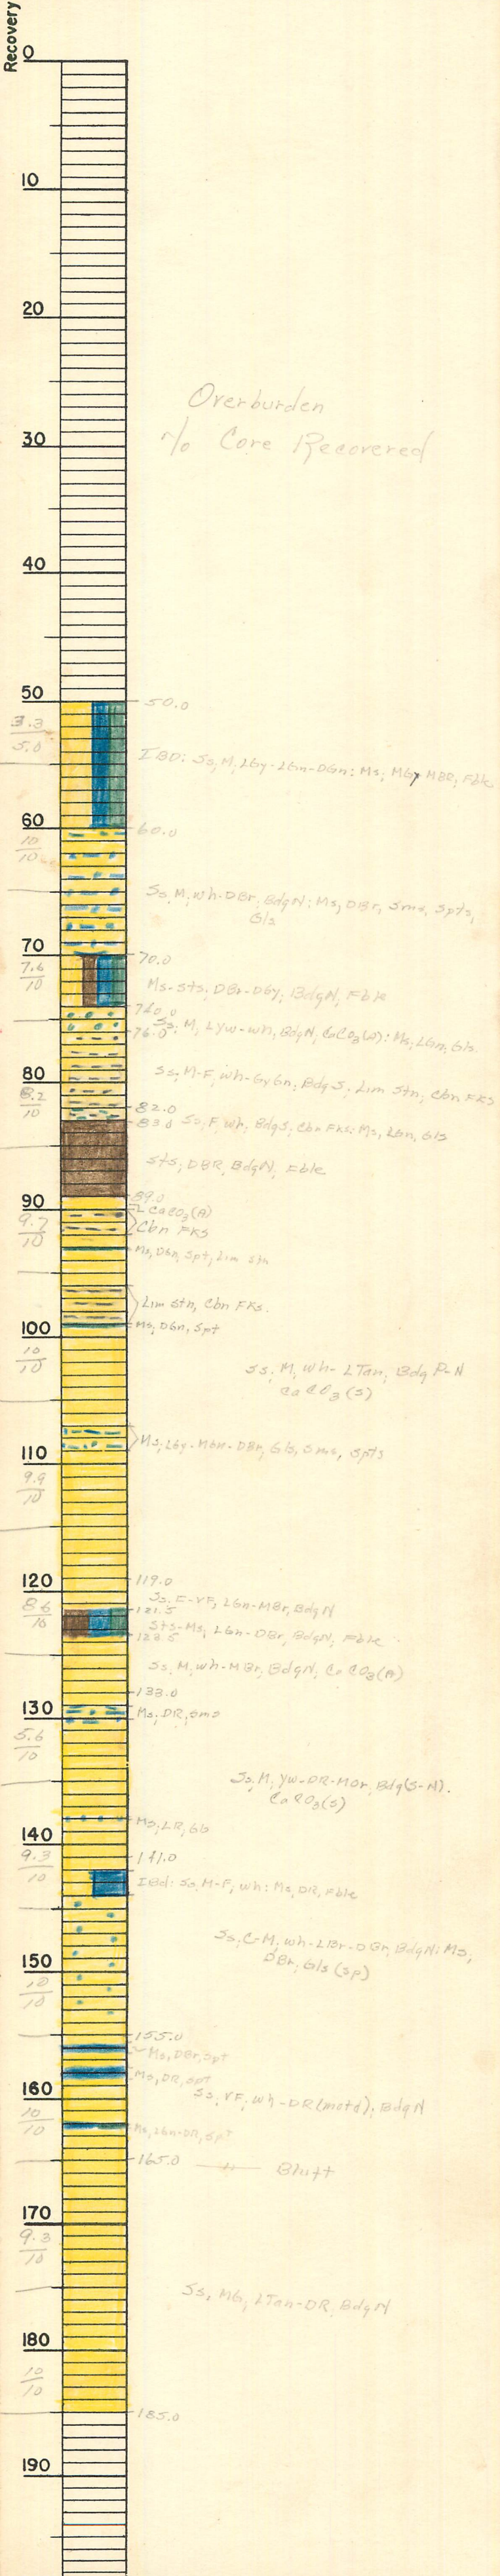 Recovery
0
10
20
Overburden
No Core Recovered
30
40
50
50.0
3.3
5.0
IBD: Ss, M, LGy-LGn-DGn: Ms, MGy MBR, Fble
60
60.0
10
10
Ss, M, wh-DBr, BdgN; Ms, DBr, Sms, Spts,
Gls
70
70.0
7.6
10
Ms-Sts; DBr-DGy, BdgN, Fble
74.0
Ss; M, LYw-wh, BdgN, CaCO3(A): Ms, LGn, Gls.
76.0
80
Ss; M-F, wh-GyGn; Bdg S; Lim Stn; Cbn FKS
8.2
10
82.0
83.0
Ss, F, wh, BdgS; Cbn FKs: Ms, LGn, Gls
Sts; DBR, BdgN, Fble
89.0
90
CaCO3(A)
9.7
10
Cbn FKS
Ms, DGn, Spt, Lim stn
Lim Stn, Cbn FKs.
100
Ms; DGn, Spt
10
10
Ss, M, wh-LTan; Bdg P-N
CaCO3(S)
Ms; LGy-MGn-DBr; Gls, Sms, Spts
110
9.9
10
119.0
120
Ss, F-VF, LGn-MBr, BdgN
8.6
10
121.5
Sts-Ms, LGn-DBr, BdgN, Fble
123.5
Ss, M, wh-MBr, BdgN, CaCO3(A)
130
Ms; DR, sms
5.6
10
Ss, M, Yw-DR-MOr, Bdg(S-N).
CaCO3(S)
Ms; LR, GG
140
141.0
9.3
10
IBd: Ss, M-F, wh: Ms, DR, Fble
Ss, C-M, wh-LBr-DGr, BdgN: Ms,
DBr, Gls (sp)
150
10
10
155.0
Ms, DBr, spt
Ms, DR, spt
160
Ss, VF, wh-DR(motd); BdgN
10
10
Ms, LGn-DR, spt
165.0
Bluff
170
9.3
10
Ss, MG, LTan-DR, BdgN
180
10
10
185.0
190